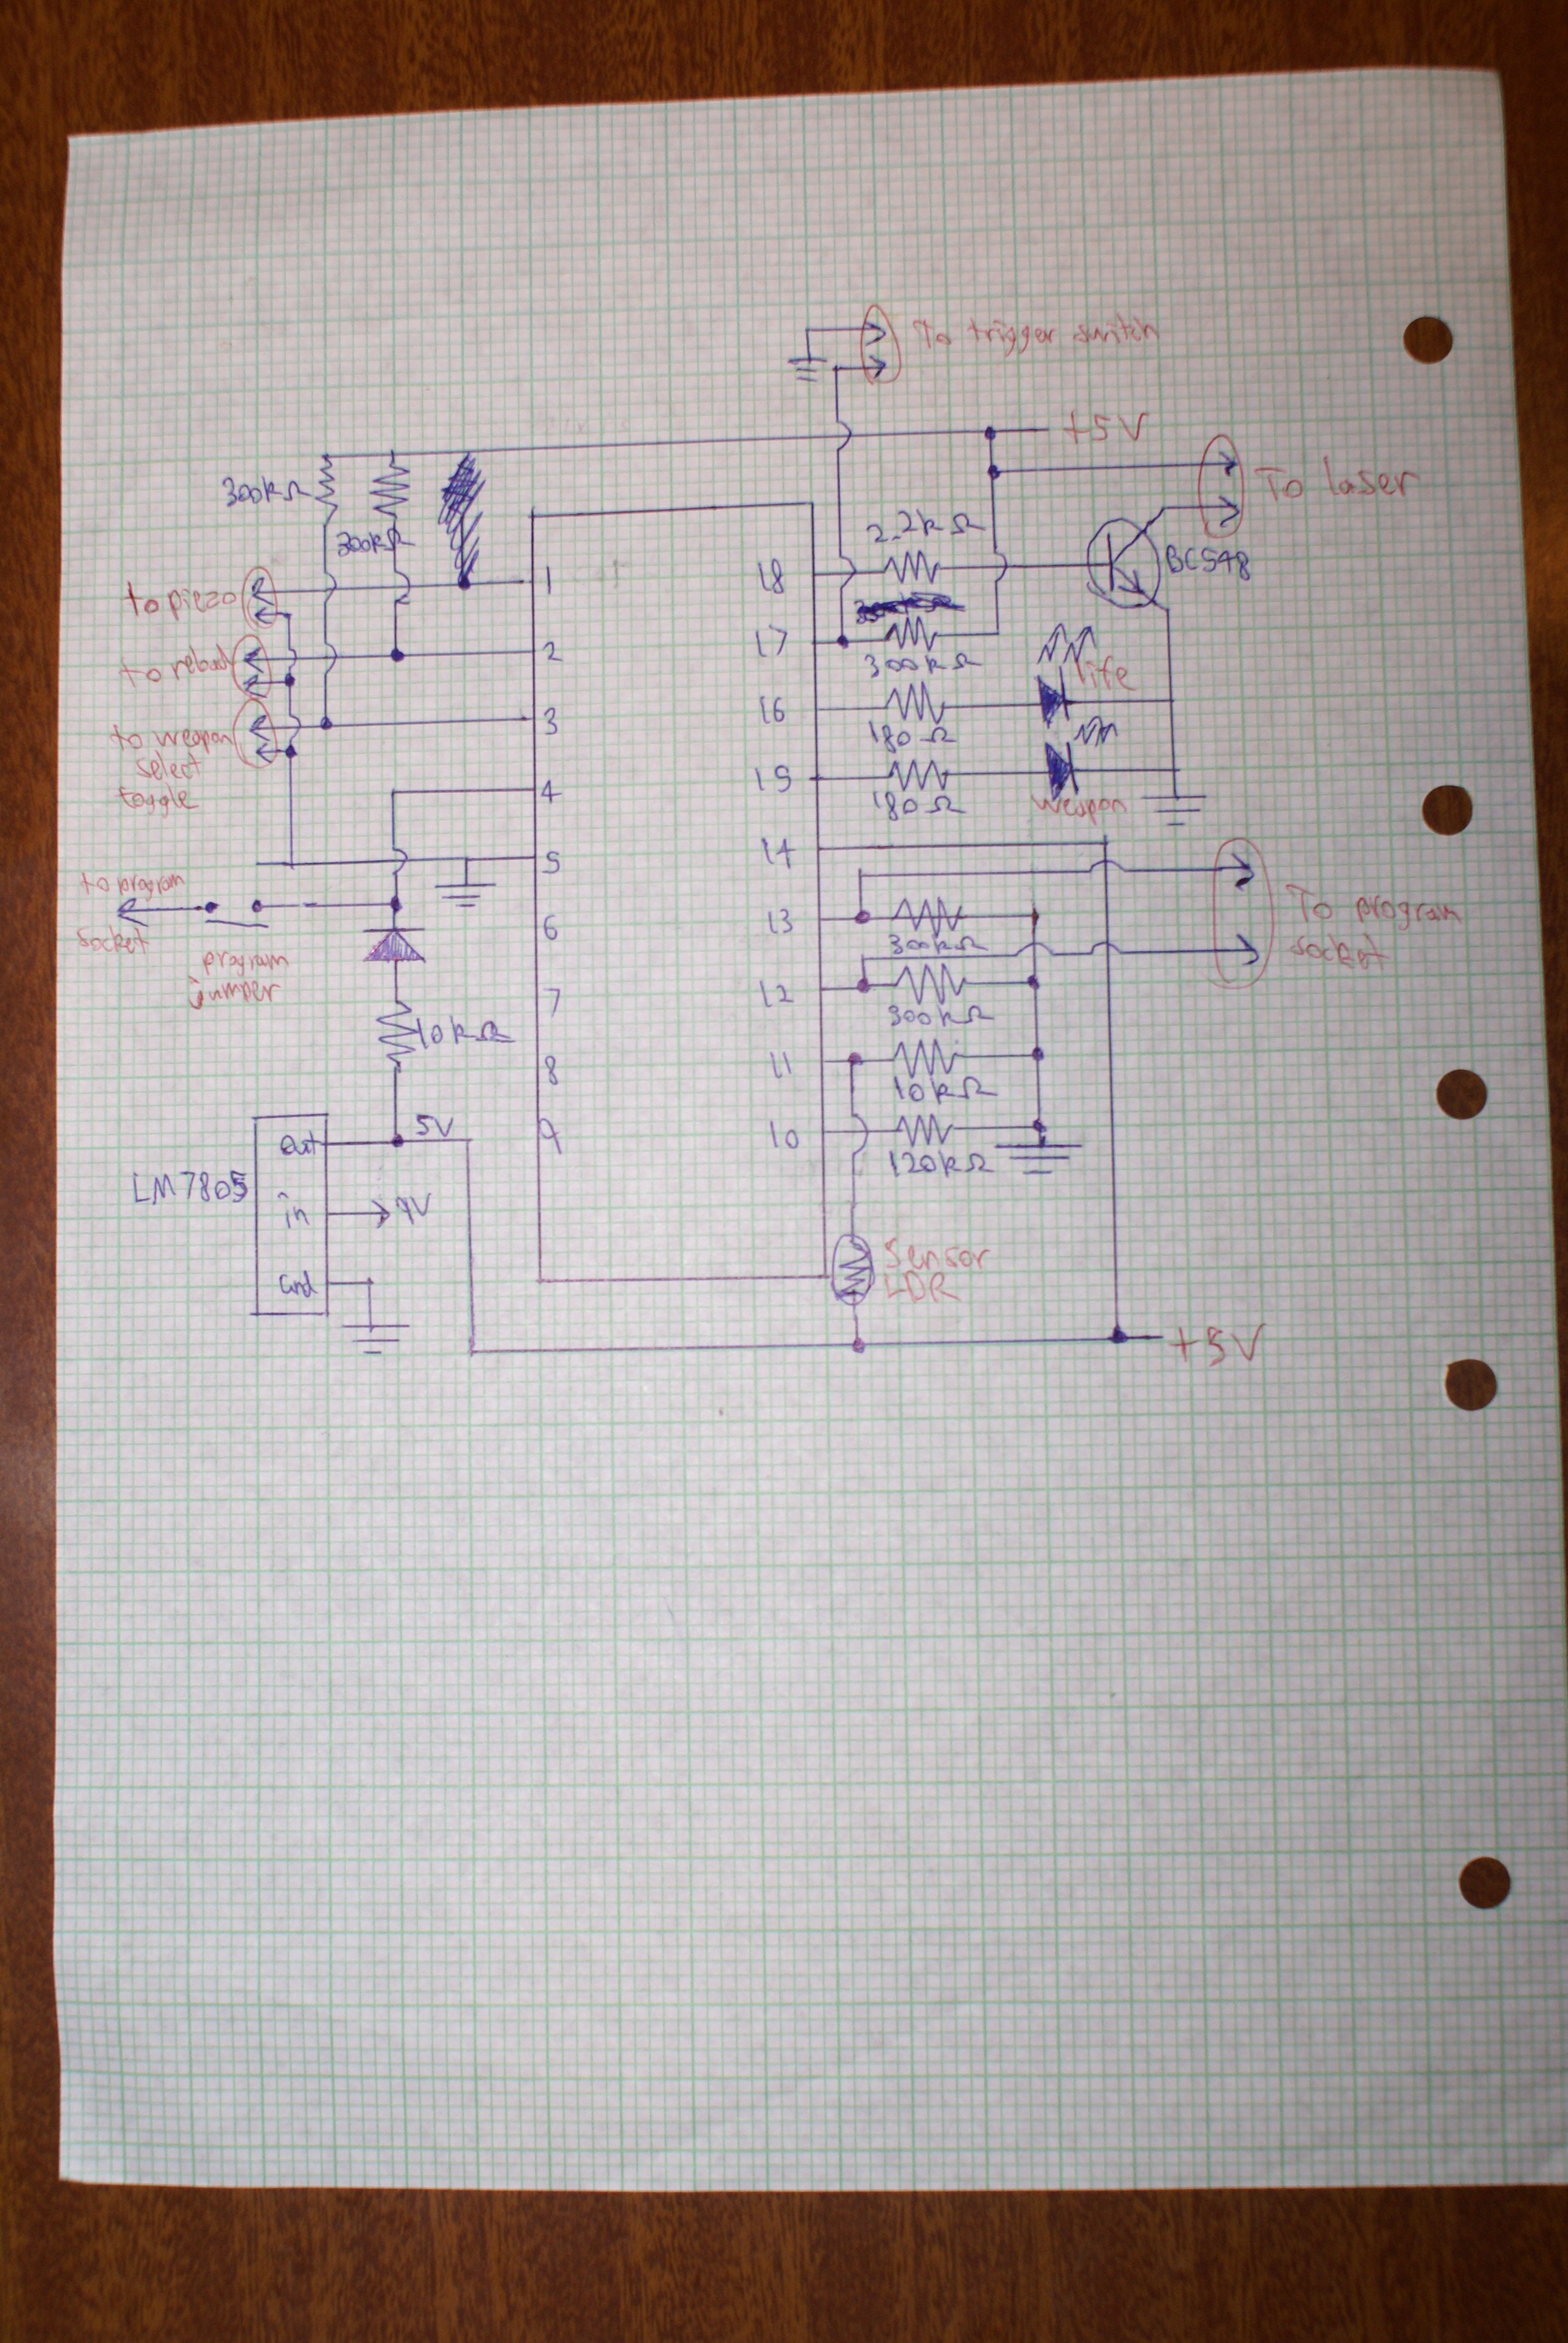 To trigger switch
+5V
300kΩ
To laser
2.2kΩ
300kΩ
BC548
1
18
to piezo
17
2
300kΩ
life
to reload
16
3
180Ω
to weapon
select
toggle
15
4
180Ω
weapon
14
5
to program
socket
13
To program
socket
6
300kΩ
program
jumper
12
7
300kΩ
10kΩ
11
8
10kΩ
5V
10
9
out
120kΩ
LM7805
in
9V
Sensor
LDR
Gnd
+5V